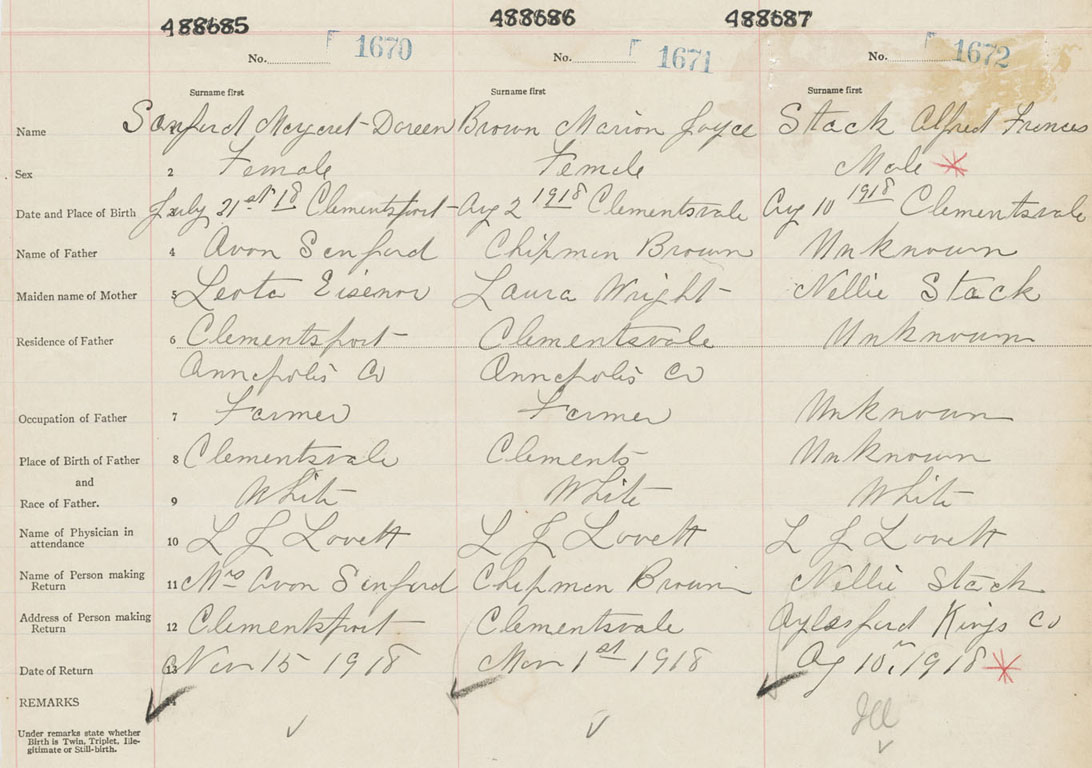 488685 488686 488687
No. 1670 No. 1671 No. 1672
Surname first Surname first Surname first
Name Sanford Margaret-Doreen Brown Marion Joyce Stack Alfred Frances
Sex 2 Female Female Male
Date and Place of Birth July 21st 18 Clementsport Aug 2 1918 Clementsvale Aug 10 1918 Clementsvale
Name of Father 4 Avon Sanford Chipman Brown Unknown
Maiden name of Mother 5 Leota Eisenor Laura Wright Nellie Stack
Residence of Father 6 Clementsport Clementsvale Unknown
Annapolis Co Annapolis Co
Occupation of Father 7 Farmer Farmer Unknown
Place of Birth of Father 8 Clementsvale Clements Unknown
and
Race of Father. 9 White White White
Name of Physician in
attendance 10 L J Lovett L J Lovett L J Lovett
Name of Person making
Return 11 Mrs Avon Sanford Chipman Brown Nellie Stack
Address of Person making
Return 12 Clementsport Clementsvale Aylesford Kings Co
Date of Return 13 Nov 15 1918 1st 1918 Ag 10, 1918
REMARKS Ill
Under remarks state whether
Birth is Twin, Triplet, Ille-
gitimate or Still-birth.